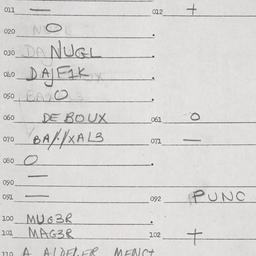 011 — 012 +
020 O
030 NUGL
040 DAJF1K
050 O
060 DE BOUX 061 O
070 BA/·/XAL3 071 —
080 O
090 —
091 — 092 PUNC
100 MUG3R
101 MAG3R 102 +
110 A